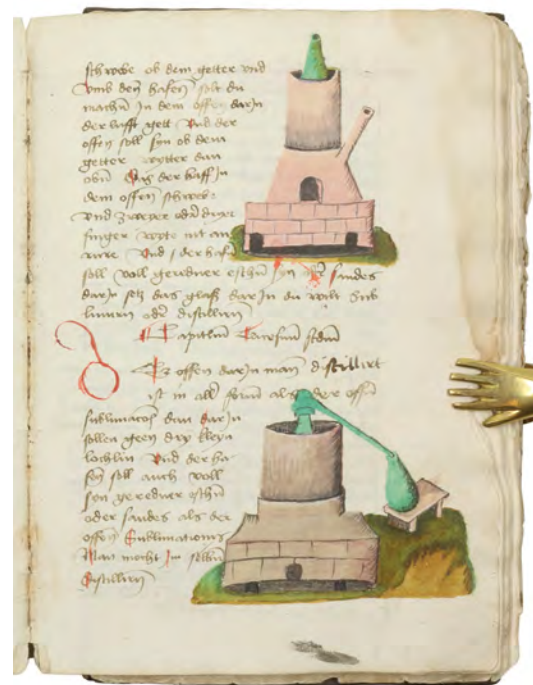 schwebe ob dem getter vnd
vmb den hafen solt du
machen Jn dem offen darJn
der lufft gett Vnd der
offen soll syn ob dem
getter wytter dan
oben Das der haff Jn
dem offen schwebe
Vnd zweyer oder dryer
finger wyte nit an
rure Vnd der haff
soll voll geredner eschen syn oder sandes
darJn setz das glass dar Jn du wilt sub
limirn oder distillirn
Capitlum
Er offen darJn man distillirt
ist in all form als der offen
sublimatorz dan darJn
sollen geen dry kleyn
lochlin Vnd der ha
fen soll auch voll
syn geredner eschen
oder sandes als der
offen Sublimationis
Man mocht Jn selbem
Distillirn